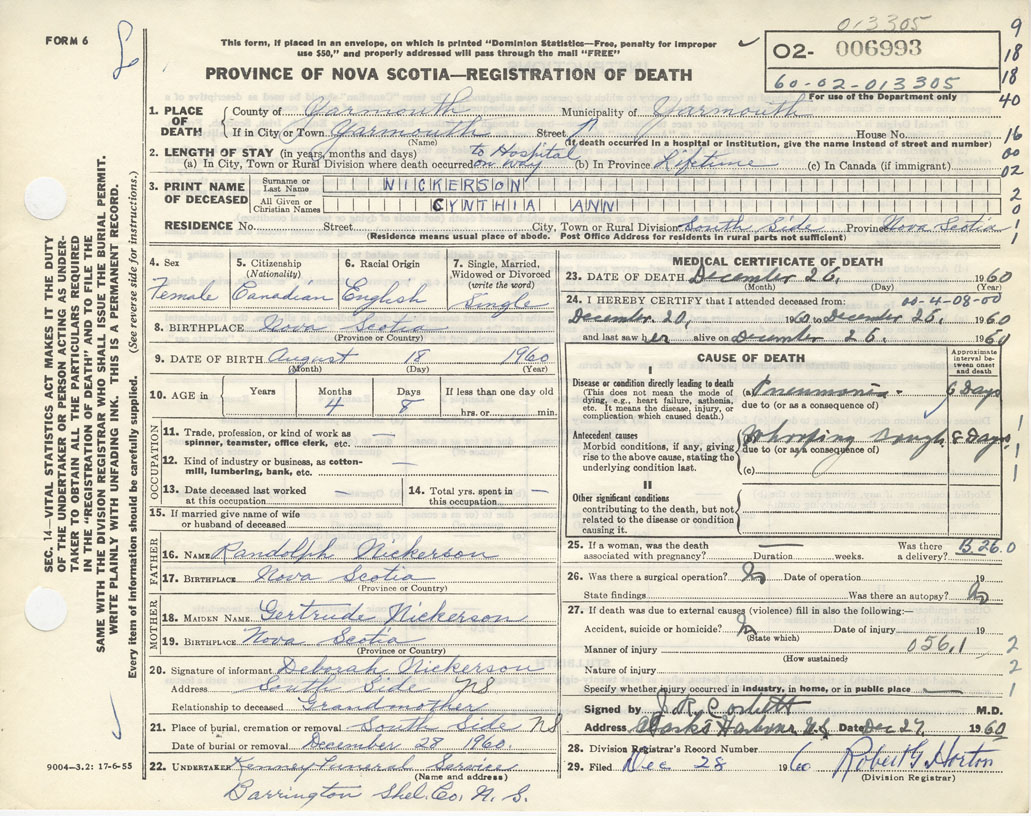 013305
FORM 6
This form, if placed in an envelope, on which is printed "Dominion Statistics—Free, penalty for improper
use $50," and properly addressed will pass through the mail "FREE"
02- 006993
60-02-013305
For use of the Department only
9
18
18
40
16
00
02
2
0
1
1
PROVINCE OF NOVA SCOTIA—REGISTRATION OF DEATH
1. PLACE OF DEATH
County of Yarmouth Municipality of Yarmouth
If in City or Town Yarmouth Street House No.
(Name) (If death occurred in a hospital or institution, give the name instead of street and number)
2. LENGTH OF STAY (in years, months and days) to Hospital
(a) In City, Town or Rural Division where death occurred on way (b) In Province Lifetime (c) In Canada (if immigrant)
3. PRINT NAME OF DECEASED
Surname or Last Name NICKERSON
All Given or Christian Names CYNTHIA ANN
RESIDENCE No. Street City, Town or Rural Division South Side Province Nova Scotia
(Residence means usual place of abode. Post Office Address for residents in rural parts not sufficient)
4. Sex
Female
5. Citizenship
(Nationality)
Canadian
6. Racial Origin
English
7. Single, Married, Widowed or Divorced
(write the word)
Single
8. BIRTHPLACE Nova Scotia
(Province or Country)
9. DATE OF BIRTH August 18 1960
(Month) (Day) (Year)
10. AGE in
Years Months Days If less than one day old
4 8 hrs. or min.
OCCUPATION
11. Trade, profession, or kind of work as
spinner, teamster, office clerk, etc. —
12. Kind of industry or business, as cotton-
mill, lumbering, bank, etc. —
13. Date deceased last worked
at this occupation —
14. Total yrs. spent in
this occupation —
15. If married give name of wife
or husband of deceased
FATHER
16. NAME Randolph Nickerson
17. BIRTHPLACE Nova Scotia
(Province or Country)
MOTHER
18. MAIDEN NAME Gertrude Nickerson
19. BIRTHPLACE Nova Scotia
(Province or Country)
20. Signature of informant Deborah Nickerson
Address South Side NS
Relationship to deceased Grandmother
21. Place of burial, cremation or removal South Side NS
Date of burial or removal December 28 1960.
22. UNDERTAKER Kenney Funeral Service
(Name and address)
Barrington Shel. Co. N. S.
MEDICAL CERTIFICATE OF DEATH
23. DATE OF DEATH December 26, 1960
(Month) (Day) (Year)
24. I HEREBY CERTIFY that I attended deceased from: 00-4-08-00
December 20, 1960 to December 26, 1960
and last saw her alive on December 26, 1960
CAUSE OF DEATH
Approximate interval between onset and death
I
Disease or condition directly leading to death
(This does not mean the mode of
dying, e.g., heart failure, asthenia,
etc. It means the disease, injury, or
complication which caused death.)
(a) Pneumonia 6 Days
due to (or as a consequence of)
Antecedent causes
Morbid conditions, if any, giving
rise to the above cause, stating the
underlying condition last.
Whooping cough 8 Days
due to (or as a consequence of)
(c)
1
1
1
II
Other significant conditions
contributing to the death, but not
related to the disease or condition
causing it.
25. If a woman, was the death
associated with pregnancy? — Duration weeks. Was there a delivery? B.26.0
26. Was there a surgical operation? No Date of operation 19
State findings Was there an autopsy? No
27. If death was due to external causes (violence) fill in also the following:—
Accident, suicide or homicide? No Date of injury 19
(State which)
Manner of injury 056,1 2
(How sustained)
Nature of injury 2
Specify whether injury occurred in industry, in home, or in public place — 1
Signed by M.D.
Address Clarks Harbour N.S. Date Dec 27 1960
28. Division Registrar's Record Number
29. Filed Dec 28 1960 Robert G Horton
(Division Registrar)
SEC. 14—VITAL STATISTICS ACT MAKES IT THE DUTY
OF THE UNDERTAKER OR PERSON ACTING AS UNDER-
TAKER TO OBTAIN ALL THE PARTICULARS REQUIRED
IN THE "REGISTRATION OF DEATH" AND TO FILE THE
SAME WITH THE DIVISION REGISTRAR WHO SHALL ISSUE THE BURIAL PERMIT.
WRITE PLAINLY WITH UNFADING INK. THIS IS A PERMANENT RECORD.
Every item of information should be carefully supplied. (See reverse side for instructions.)
9004-3.2: 17-6-55